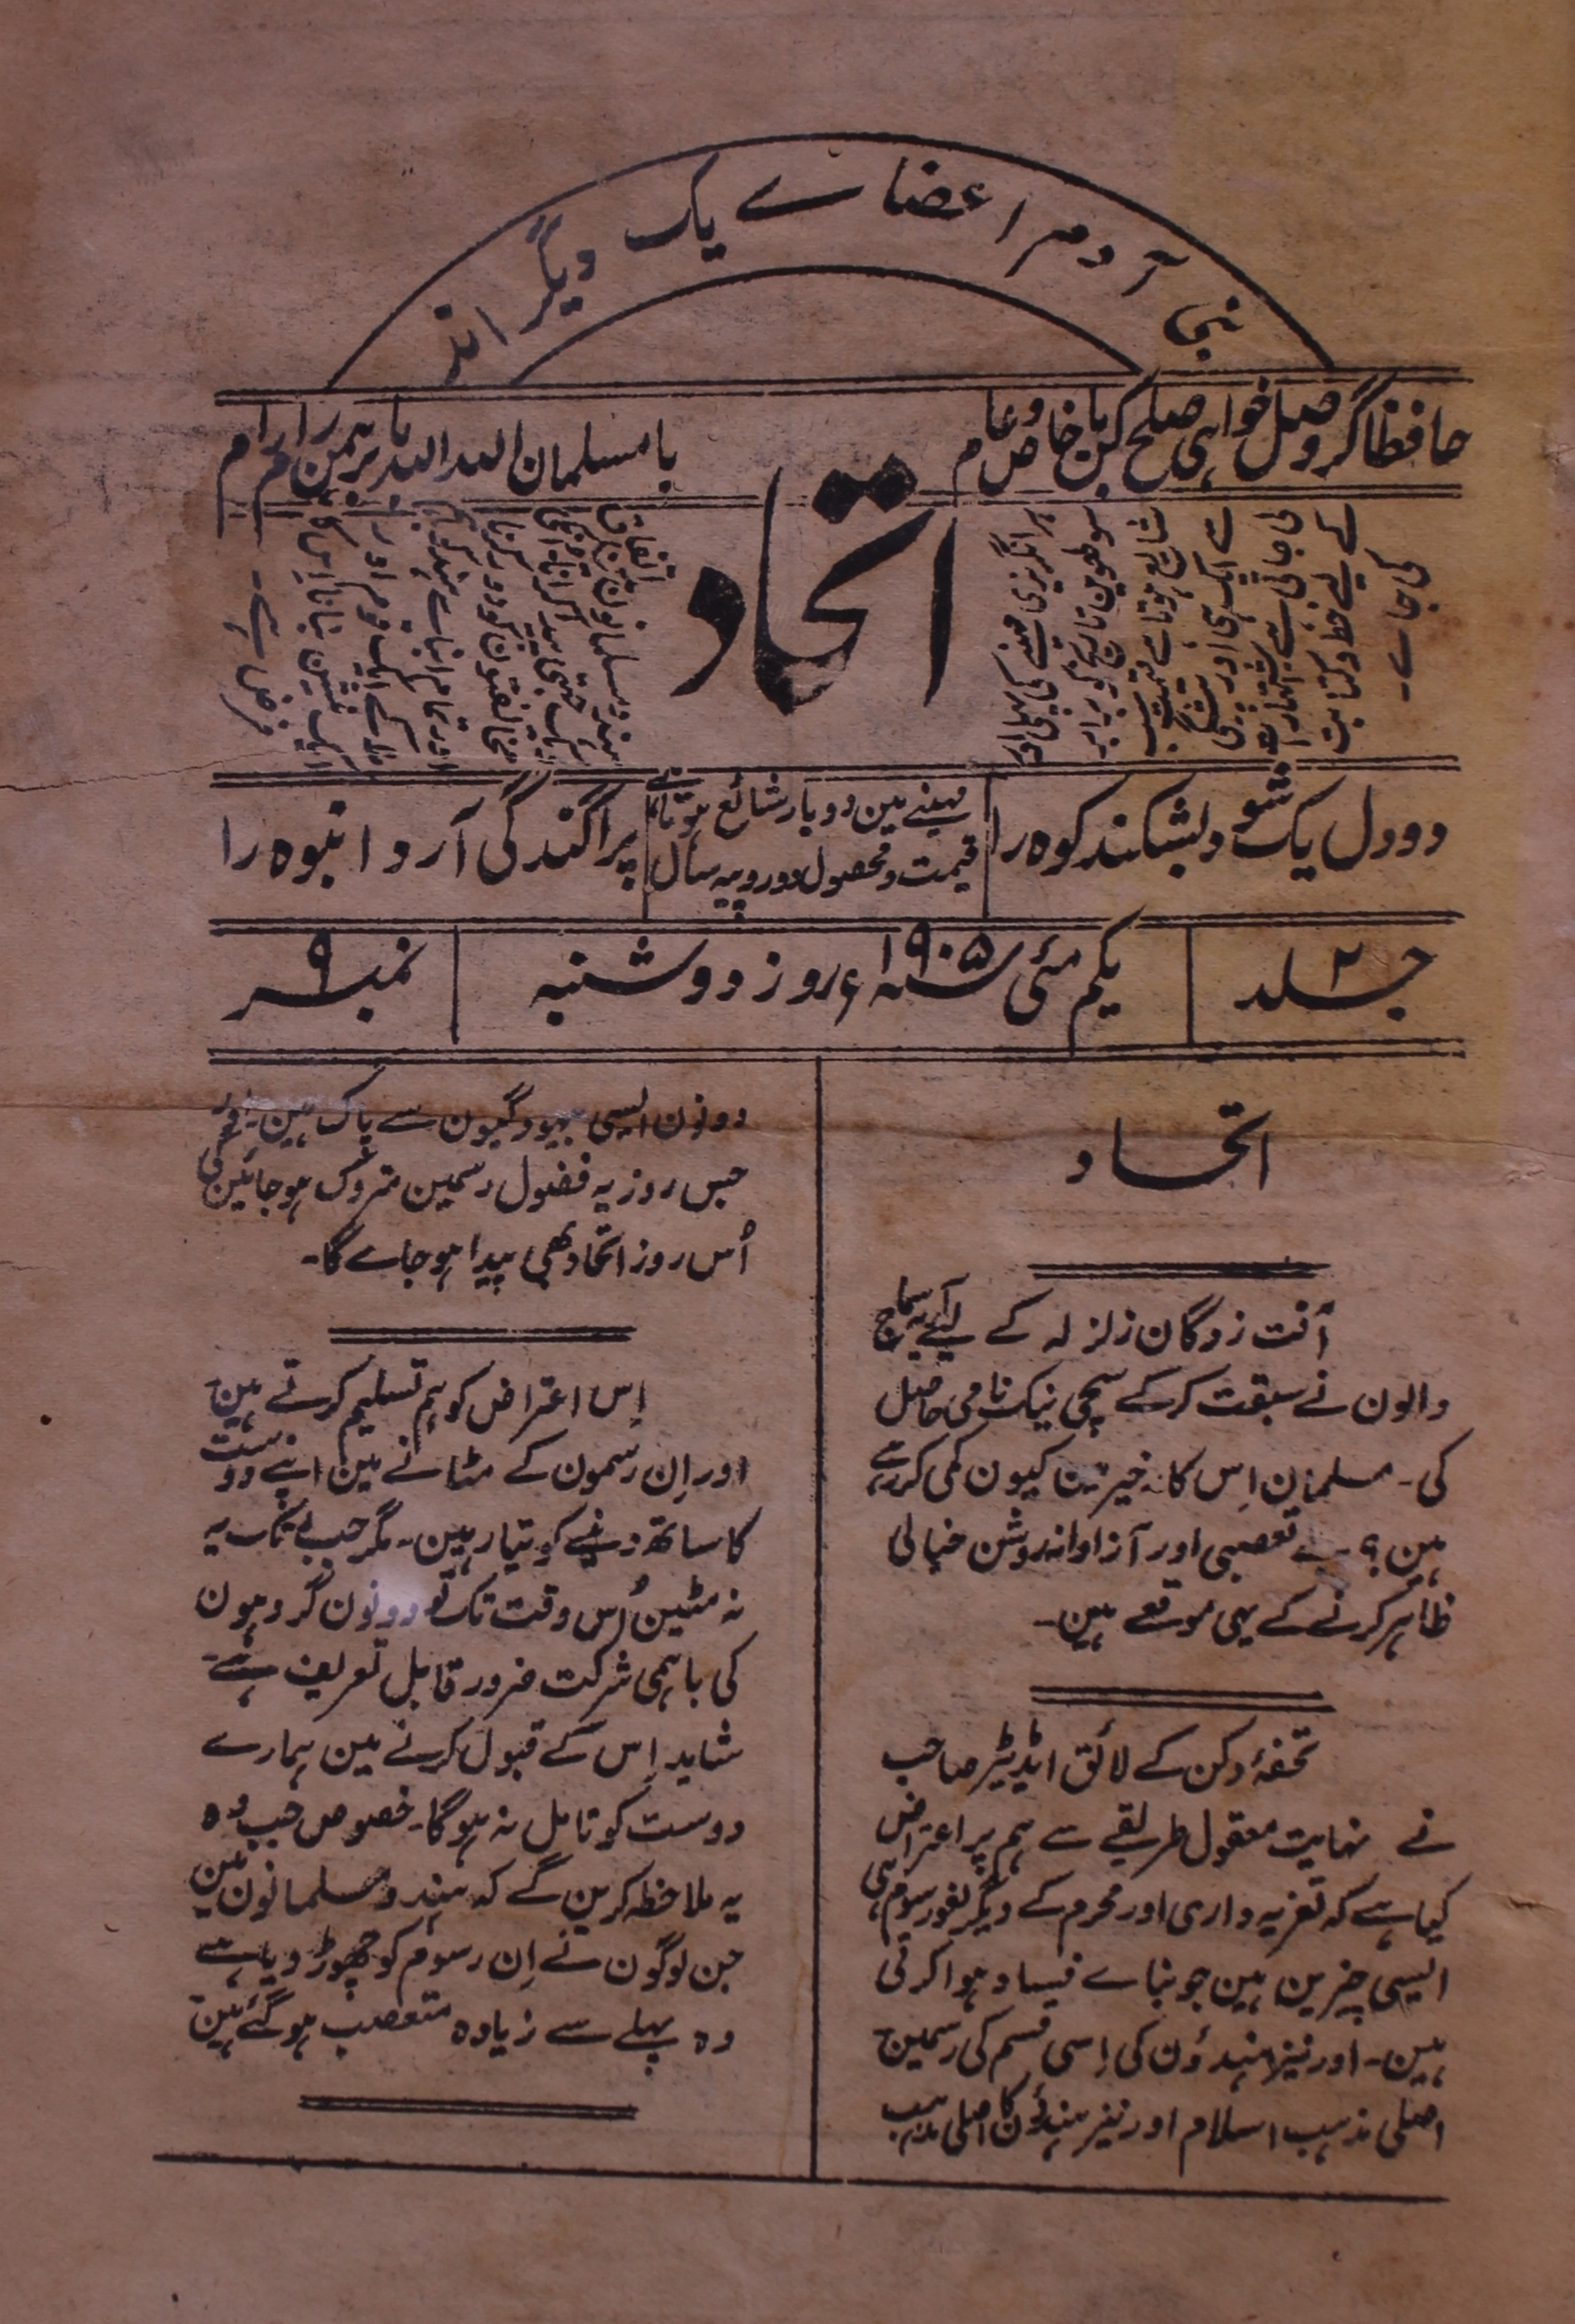 بنی آدم اعضاے یک دیگر اند
حافظا گر وصل خواہی صلح کن با خاص و عام
با مسلمان اللہ اللہ با برہمن رام رام
اتحاد
ہر انگریزی مہینے کی پہلی اور
سولھوین تاریخ کو برابر
شایع ہوتا ہے قیمت سب
سے ایک ہی اور پیشگی
لی جاتی ہے اشتہارات
کے لیے خط و کتابت
کی جاے۔
ہندو مسلمانون مین
مخالفتون کو دور کرنا
اور تمام
فرض ہے۔
دو دل یک شو د بشکند کوہ را
مہینے مین دو بار شائع ہوتا ہے
قیمت و محصول دو روپیہ سال
پراگندگی آرد انبوہ را
جلد ۲
یکم مئی سنہ ۱۹۰۵ء روز دوشنبہ
نمبر ۹
اتحاد
آفت زدگان زلزلہ کے لیے آریہ سماج
والون نے سبقت کرکے سچی نیک نامی حاصل
کی۔ مسلمان اِس کارخیر مین کیون کمی کر رہے
ہین؟ بے تعصبی اور آزادانہ روشن خیالی
ظاہر کرنے کے یہی موقعے ہین۔
تحفۂ دکن کے لائق ایڈیٹر صاحب
نے نہایت معقول طریقے سے ہم پر اعتراض
کیا ہے کہ تعزیہ داری اور محرم کے دیگر لغو رسوم ہی
ایسی چیزین ہین جو بناے فساد ہوا کرتی
ہین۔ اور نیز ہندؤن کی اِسی قسم کی رسمین
اصلی مذہب اسلام اور نیز ہندؤن کا اصلی مذہب
دونون ایسی بیہودگیون سے پاک ہین۔
جس روز یہ فضول رسمین متروک ہو جائین گی
اُس روز اتحاد بھی پیدا ہو جاے گا۔
اِس اعتراض کو ہم تسلیم کرتے ہین
اور اِن رسمون کے مٹانے مین اپنے دوست
کا ساتھ دینے کو تیار ہین۔ مگر جب تک یہ
نہ مٹین اُس وقت تک تو دونون گروہون
کی باہمی شرکت ضرور قابل تعریف ہے۔
شاید اِس کے قبول کرنے مین ہمارے
دوست کو تامل نہ ہوگا۔ خصوص جب وہ
یہ ملاحظہ کرین گے کہ ہندو مسلمانون مین
جن لوگون نے اِن رسوم کو چھوڑ دیا ہے
وہ پہلے سے زیادہ متعصب ہو گئے ہین